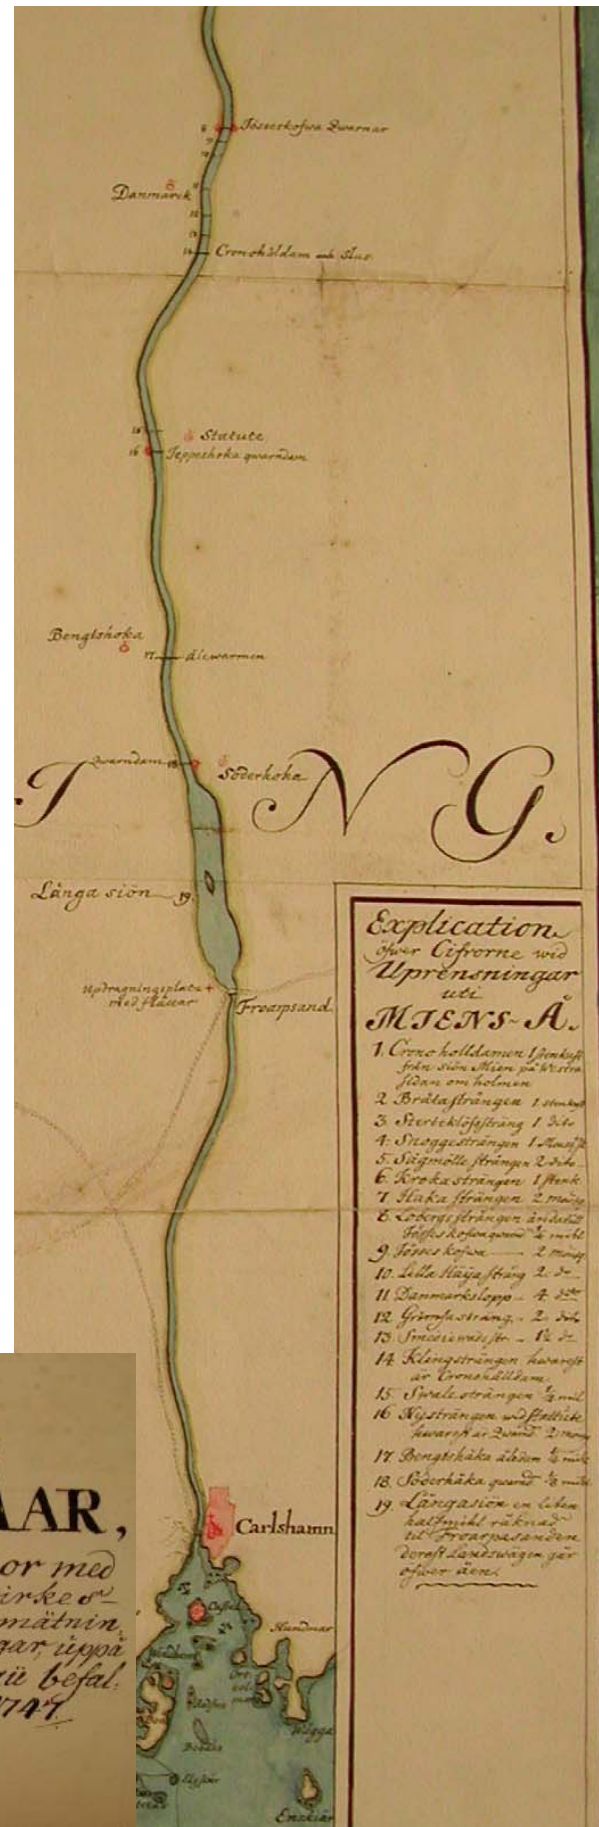 Jösseskofwa Qwarnar
8
9
10
Danmarck
11
12
13
14
Cronohåldam och Slus
15
Statute
16
Jeppeshoka qwarndam
Bengtshoka
17
Ålewarmen
Qwarndam 18
Söderhoka
I N G.
Långa siön 19
Updragningsplats
med flåttar
Froarpsand
Explication
öfwer Cifrorne wid
Uprensningar
uti
MIENS-Å.
1. Crono holldamen 1 stenkast
från siön Mien på Westra
sidan om holmen
2. Bråtasträngen 1 stenkast
3. Sterteklöfssträng 1 dito
4. Snoggesträngen 1
5. Sågmölle strängen 2 dito
6. Kroka strängen 1 stenk
7. Haka strängen 2
8. Lobergs strängen
qwarn ¼ mihl
9. Jösseskofwa 2
10. Lilla Häÿa sträng 2 do
11. Danmarkslopp 4 dito
12. sträng 2 dito
13. str. 1½ do
14. Klingsträngen hwarest
är Cronohålldam.
15. Swale strängen ¼ mil
16. Nysträngen wid Stattute
hwarest är Qwarnd. 2
17. Bengtshåka åledam ¼ mihl
18. Söderhåka qwarnd. ⅛ mihl
19. Långasiön en liten
halfmihl räknad
til Froarpasanden
derest Landswägen går
öfwer åen.
AAR,
or med
irkes-
mätnin
gar, uppå
befal:
1747.
Carlshamn
Castell
Hundmar
Wägga
Bockö
Enskiär